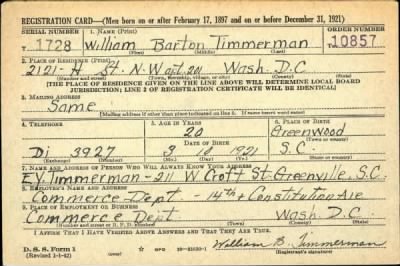 REGISTRATION CARD—(Men born on or after February 17, 1897 and on or before December 31, 1921)
SERIAL NUMBER 1. NAME (Print) ORDER NUMBER
T 1728 William Barton Timmerman 10857
(First) (Middle) (Last)
2. PLACE OF RESIDENCE (Print)
2121- H St. N.W apt. 201 Wash. D.C
(Number and street) (Town, township, village, or city) (County) (State)
[THE PLACE OF RESIDENCE GIVEN ON THE LINE ABOVE WILL DETERMINE LOCAL BOARD
JURISDICTION; LINE 2 OF REGISTRATION CERTIFICATE WILL BE IDENTICAL]
3. MAILING ADDRESS
Same
[Mailing address if other than place indicated on line 2. If same insert word same]
4. TELEPHONE 5. AGE IN YEARS 6. PLACE OF BIRTH
20 Greenwood
DATE OF BIRTH (Town or county)
Di 3927 3 1921 S.C.
(Exchange) (Number) (Mo.) (Day) (Yr.) (State or country)
7. NAME AND ADDRESS OF PERSON WHO WILL ALWAYS KNOW YOUR ADDRESS
Timmerman - 211 W St. Greenville, S.C.
8. EMPLOYER'S NAME AND ADDRESS
Commerce Dept - 14th & Constitution Ave
9. PLACE OF EMPLOYMENT OR BUSINESS
Commerce Dept. Wash. D.C.
(Number and street or R. F. D. number) (Town) (County) (State)
I AFFIRM THAT I HAVE VERIFIED ABOVE ANSWERS AND THAT THEY ARE TRUE.
D. S. S. Form 1
(Revised 1-1-42) GPO William B. Timmerman
(Registrant's signature)